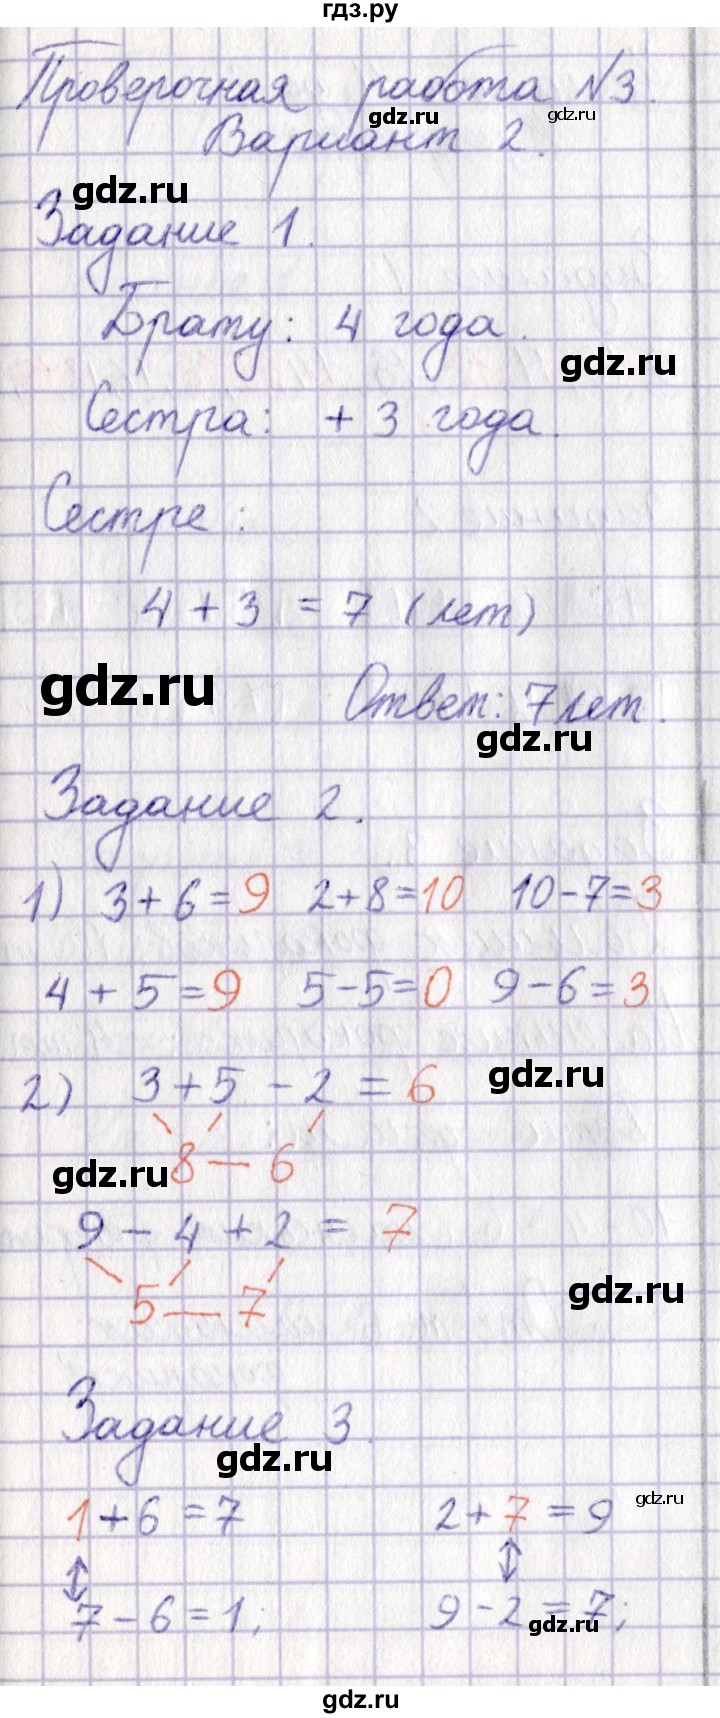 гдз.ру
Проверочная работа №3.
gdz.ru
gdz.ru
Вариант 2.
gdz.ru
Задание 1.
Брату: 4 года.
gdz.ru
Сестра: + 3 года.
Сестре:
4 + 3 = 7 (лет)
gdz.ru
Ответ: 7 лет.
gdz.ru
Задание 2.
1) 3+6=9 2+8=10 10-7=3
4+5=9 5-5=0 9-6=3
2) 3+5-2=6
gdz.ru
8 — 6
gdz.ru
9-4+2=7
5 — 7
gdz.ru
Задание 3.
gdz.ru
1+6=7 2+7=9
gdz.ru
7-6=1; 9-2=7;
gdz.ru
gdz.ru